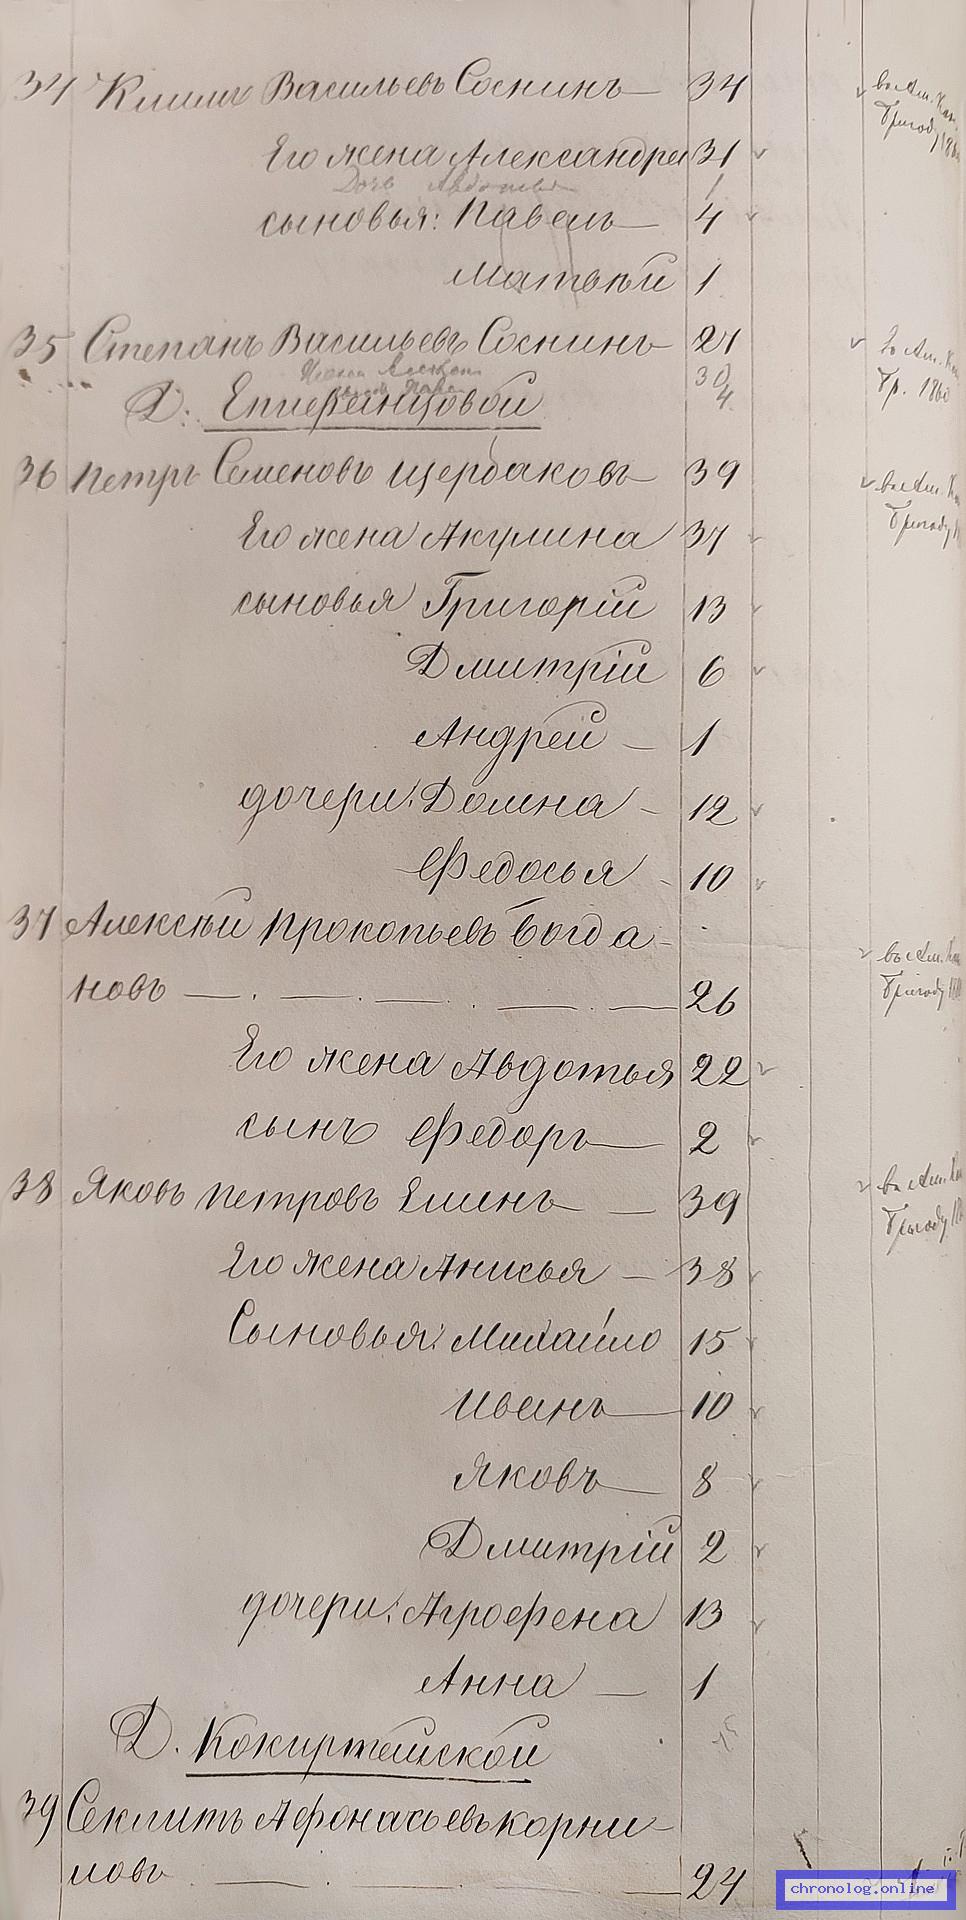 34 Климъ Васильевъ Соснинъ — 34
Его жена Александра 31
Дочь Авдотья 1
сыновья: Павелъ — 4
Матвѣй 1
35 Степанъ Васильевъ Соснинъ — 21
30
4
Д: Епифанцовой
36 Петръ Семеновъ Щербаковъ — 39
Его жена Акулина 37
сыновья Григорій 13
Дмитрій 6
Андрей — 1
дочери: Домна — 12
Федосья — 10
37 Алексѣй Прокопьевъ Богда-
новъ — . — . — . — . — 26
Его жена Авдотья 22
сынъ Федоръ — 2
38 Яковъ Петровъ Ешинъ — 39
Его жена Анисья — 38
Сыновья: Михайло 15
Иванъ — 10
Яковъ — 8
Дмитрій 2
дочери: Агрофена 13
Анна — 1
Д. Кокиртейской
39 Секлитъ Афонасьевъ Корни-
ловъ — . — . — 24
chronolog.online